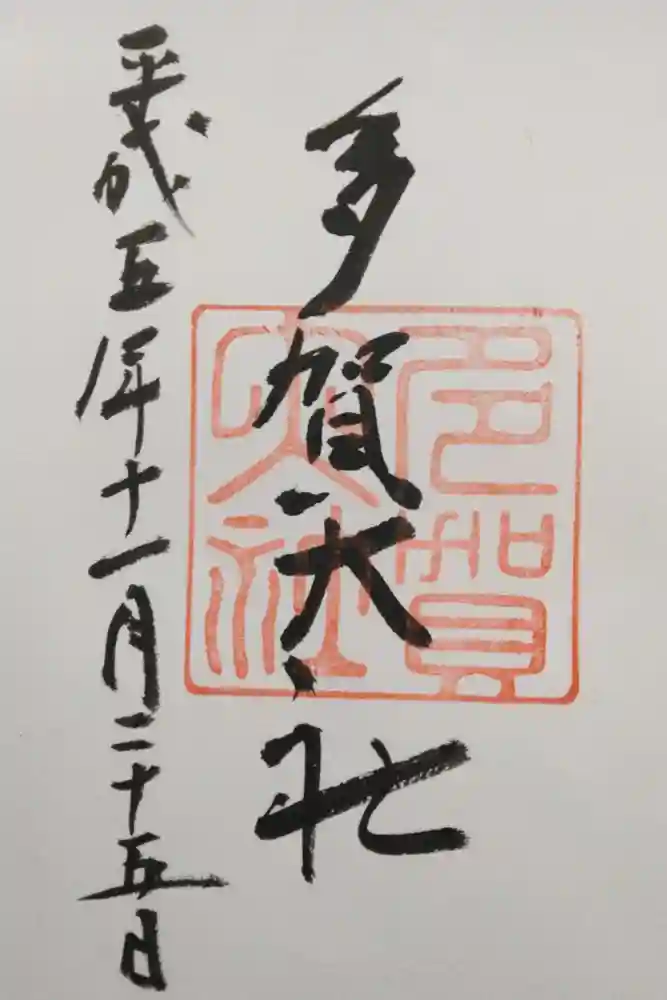 多賀大社
多賀大社
平成五年十一月二十五日